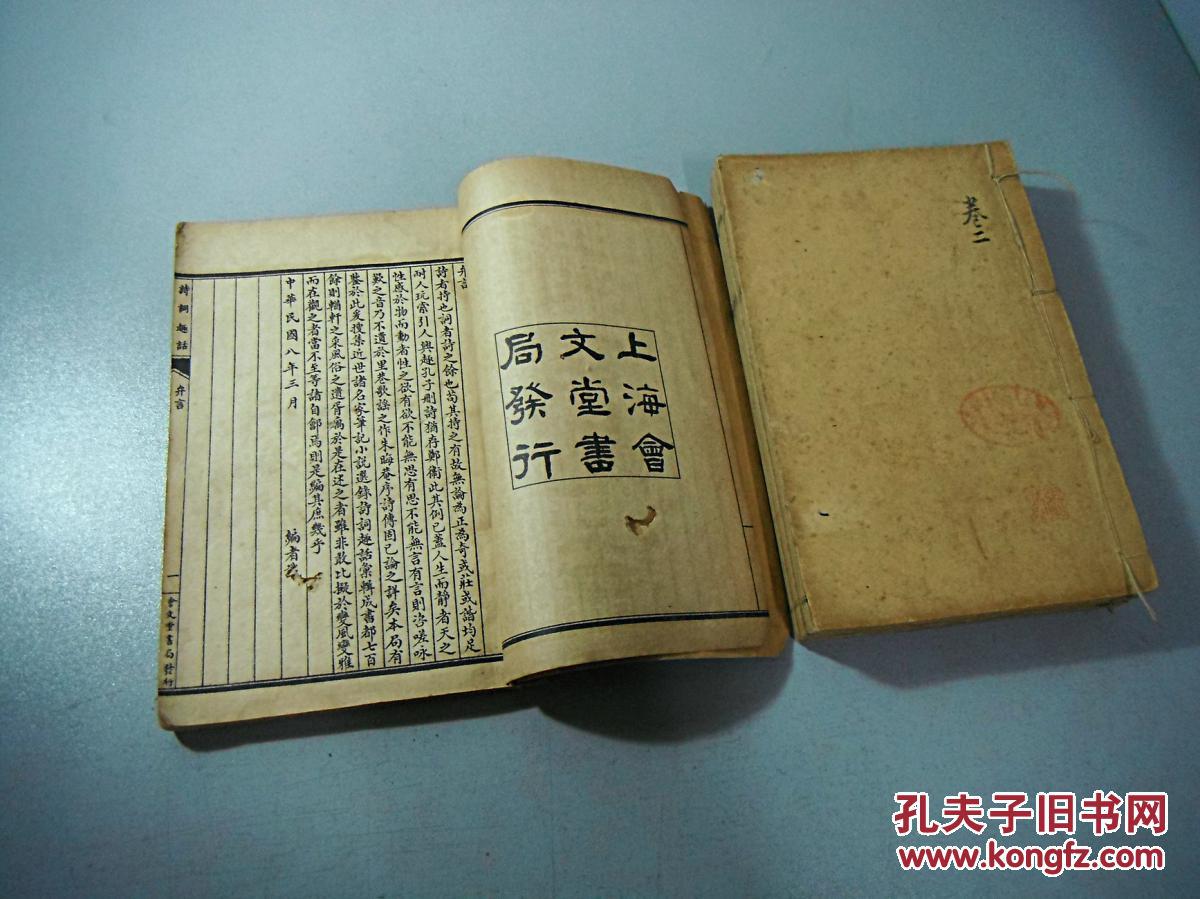 卷二
上海會
文堂書
局發行
弁言
詩者持也詞者詩之餘也苟其持之有故無論為正為奇或莊或諧均足
耐人玩索引人興趣孔子刪詩猶存鄭衛此其例已蓋人生而靜者天之
性感於物而動者性之欲有欲不能無思有思不能無言有言則咨嗟咏
歎之音乃不遺於里巷歌謠之作朱晦菴序詩傳固已論之詳矣本局有
鑒於此爰搜集近世諸名家筆記小說選錄詩詞趣話彙輯成書都七百
餘則輶軒之采風俗之遺胥寓於是在述之者雖非敢比擬於變風變雅
而在觀之者當不至等諸自鄶焉則是編其庶幾乎
中華民國八年三月
編者
詩詞趣話
弁言
一
會文堂書局發行
孔夫子旧书网
www.kongfz.com